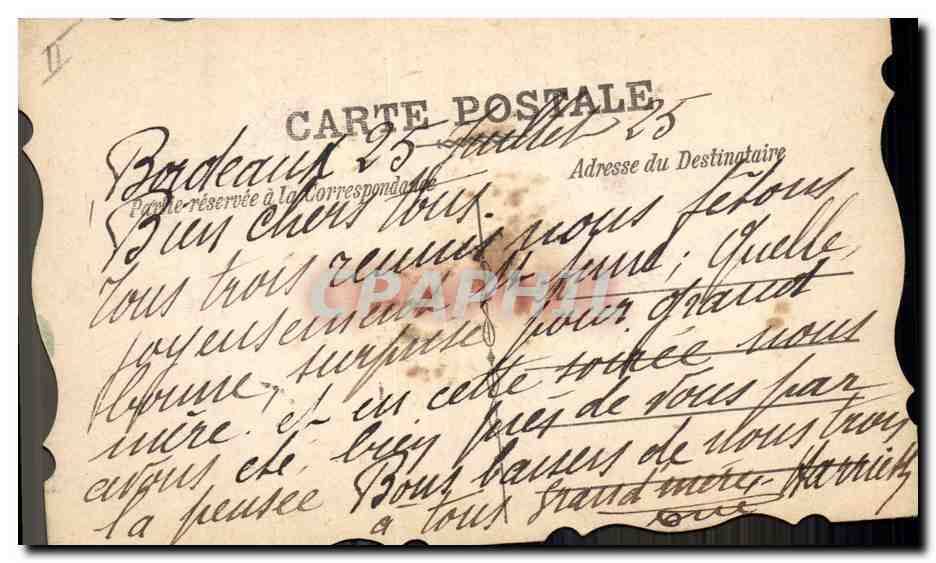 II
CARTE POSTALE
Bordeaux 25 Juillet 25
Partie réservée à la Correspondance
Adresse du Destinataire
Bien chers tous.
Tous trois réunis nous fêtons
joyeusement ; Quelle
CPAPHIL
bonne surprise pour grand
mère. et en cette soirée nous
avons été bien près de vous par
la pensée Bons baisers de nous trois
à tous grand mère Harriett